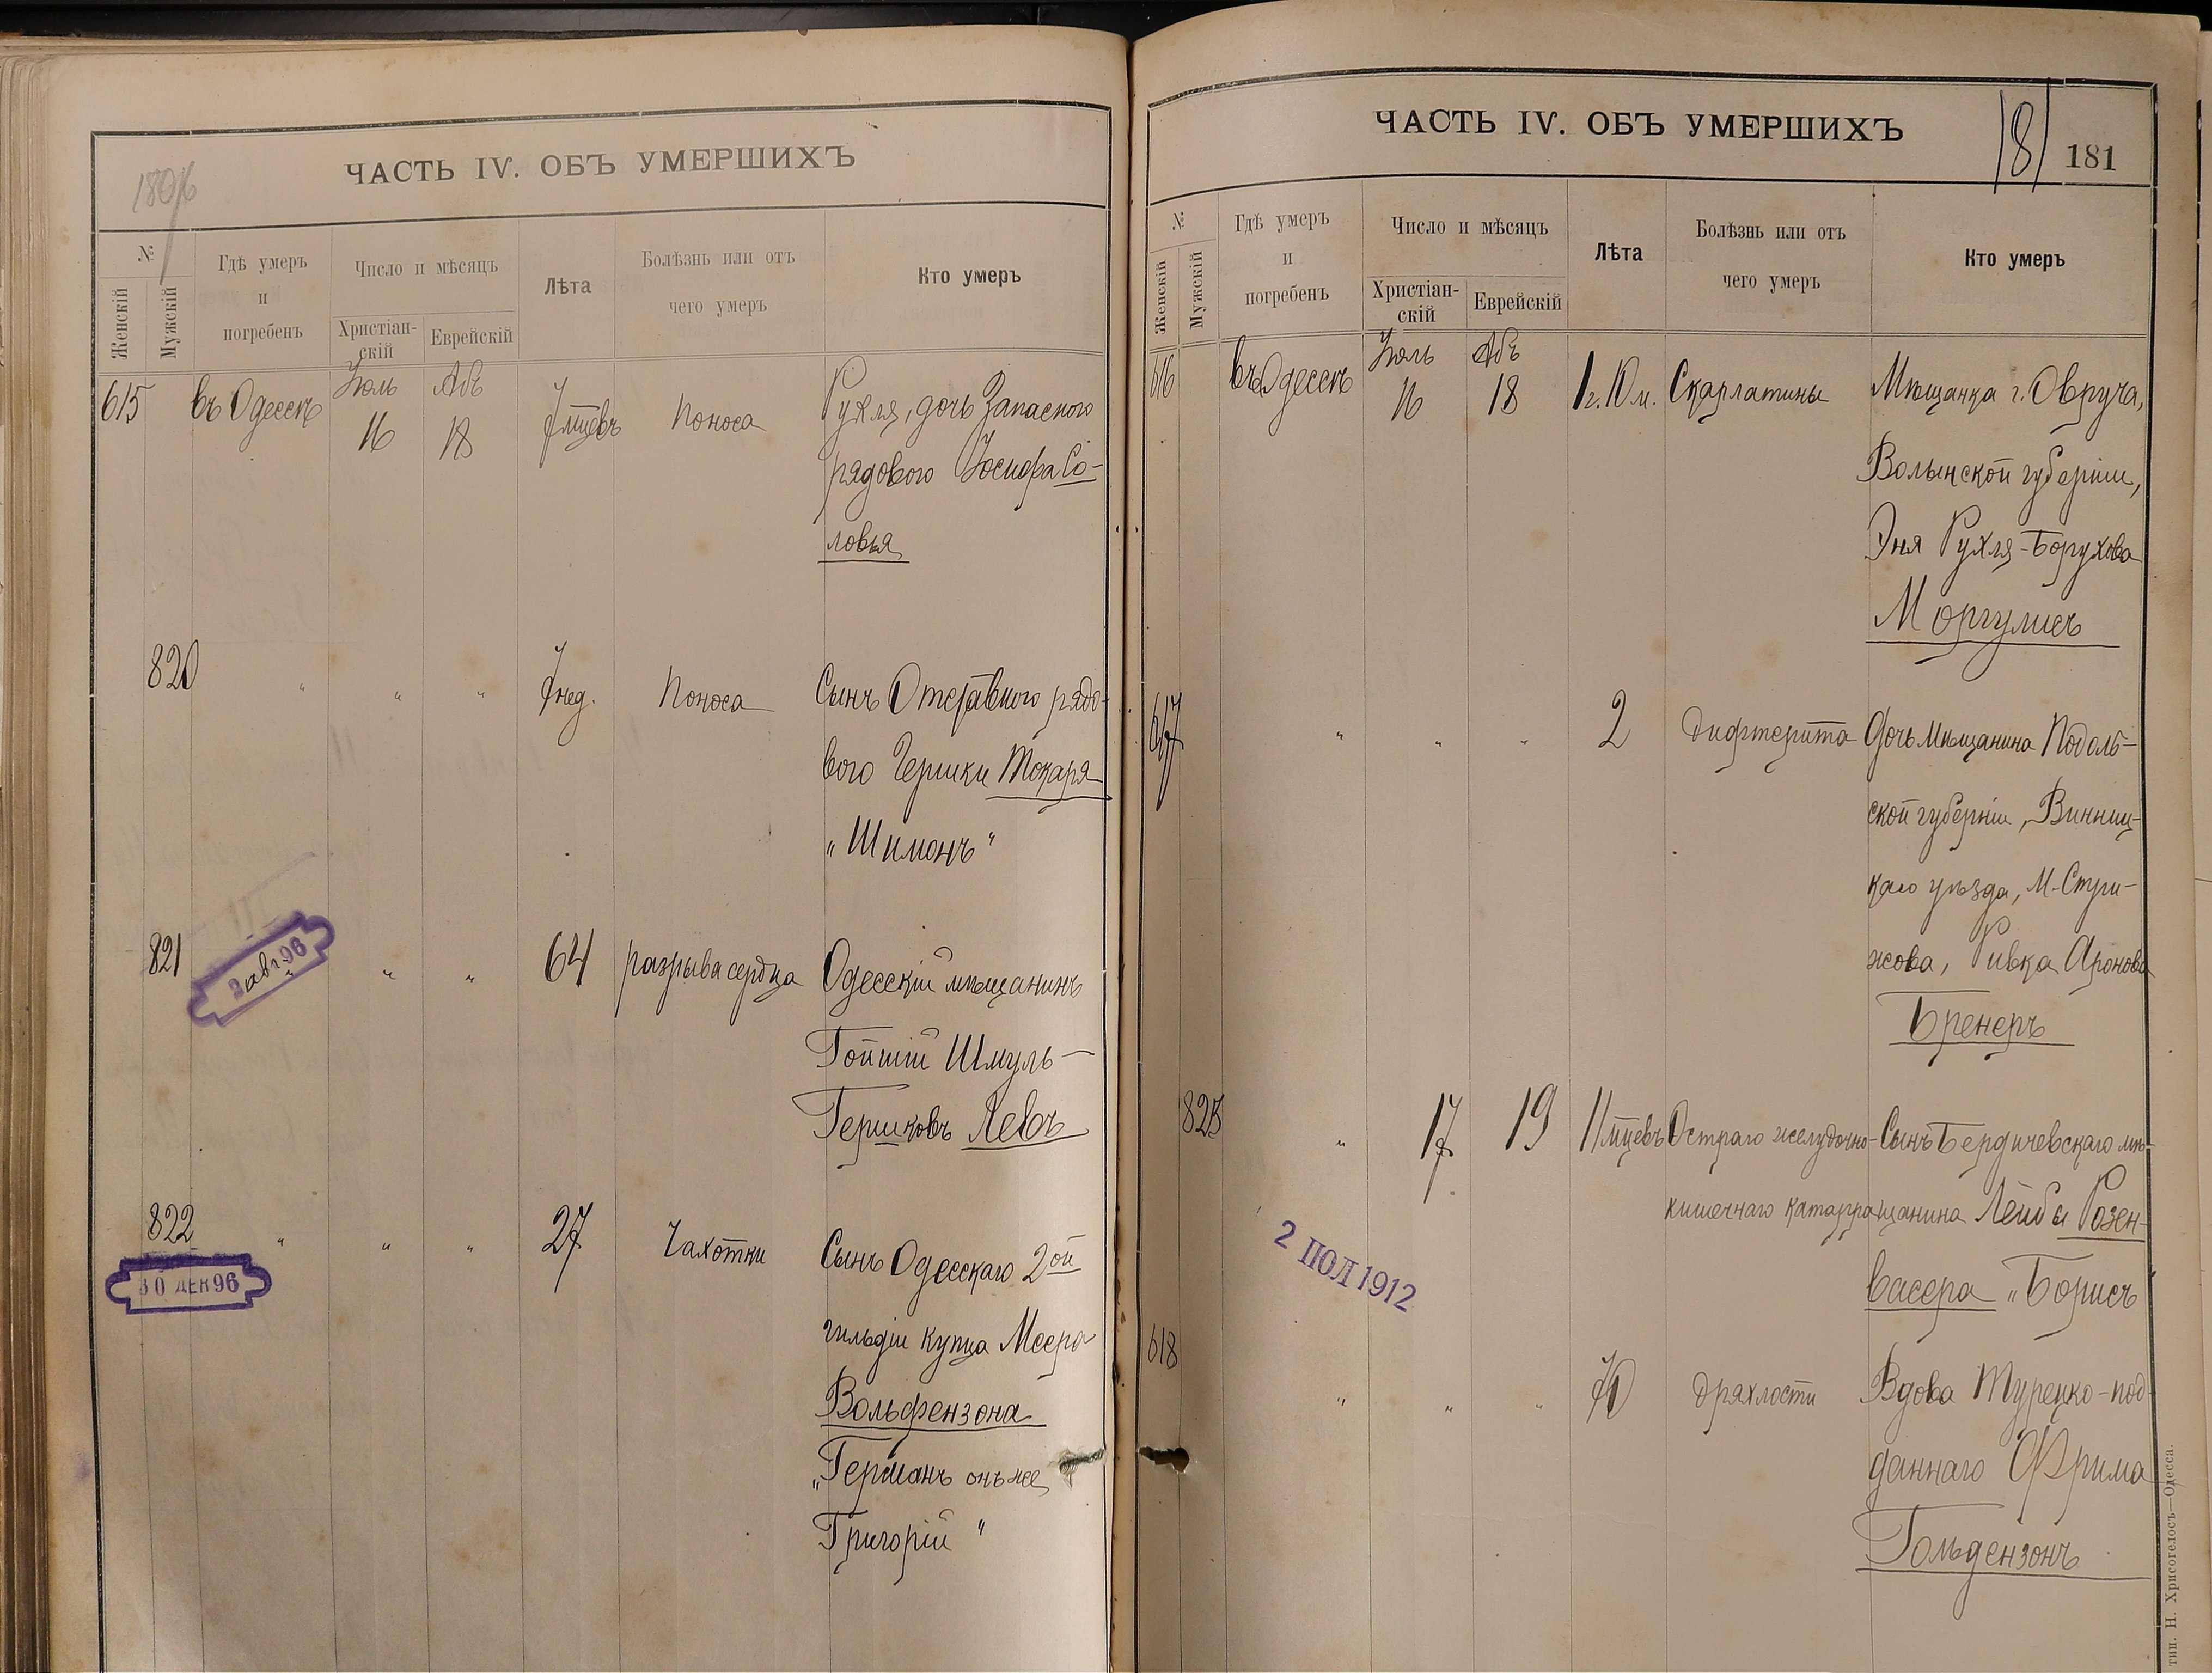 1896
ЧАСТЬ IV. ОБЪ УМЕРШИХЪ
№
Женскій
Мужскій
Гдѣ умеръ
и
погребенъ
Число и мѣсяцъ
Христіан-
скій
Еврейскій
Лѣта
Болѣзнь или отъ
чего умеръ
Кто умеръ
615 въ Одессѣ Іюль 16 Абъ 18 7 мцевъ Поноса Рухля, дочь Запасного
рядового Іосифа Со-
ловья
820 " " " 7 нед. Поноса Сынъ Отставного рядо-
вого Гершки Токаря
"Шимонъ"
821 " " 64 разрыва сердца Одесскій мѣщанинъ
авг. 96
Гойшій Шмуль-
Гершковъ Левъ
822 " " " 27 Чахотки Сынъ Одесскаго 2ой
30 ДЕК 96
гильдіи купца Меера
Вольфензона
"Германъ онъ же
Григорій"
ЧАСТЬ IV. ОБЪ УМЕРШИХЪ
181 181
№
Женскій
Мужскій
Гдѣ умеръ
и
погребенъ
Число и мѣсяцъ
Христіан-
скій
Еврейскій
Лѣта
Болѣзнь или отъ
чего умеръ
Кто умеръ
616 въ Одессѣ Іюль 16 Абъ 18 1 г. 10 м. Скарлатины Мѣщанка г. Овруча,
Волынской губерніи,
Эня Рухля-Борухова
Моргулисъ
617 " " " 2 Дифтерита Дочь мѣщанина Подоль-
ской губерніи, Винниц-
каго уѣзда, М. Стри-
жова, Ривка Аронова
Бренеръ
823 " 17 19 11 мцевъ Остраго желудочно- Сынъ Бердичевскаго мѣ-
кишечнаго катарра щанина Лейбы Розен-
васера "Борисъ
2 ІЮЛ 1912
618 " " " 70 Дряхлости Вдова Турецко-под-
даннаго Фрима
Гольдензонъ
тип. Н. Хрисогелосъ—Одесса.